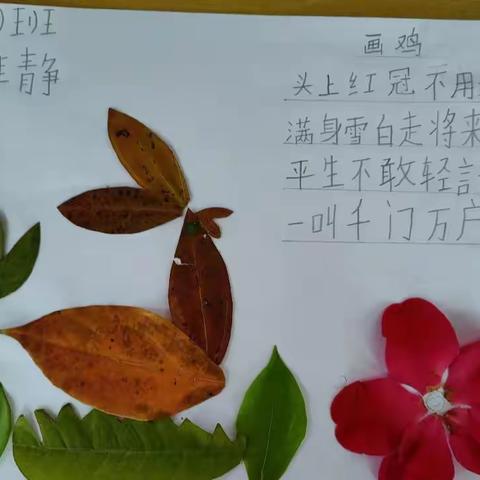 班
静
画鸡
头上红冠不用
满身雪白走将来
平生不敢轻言
一叫千门万户